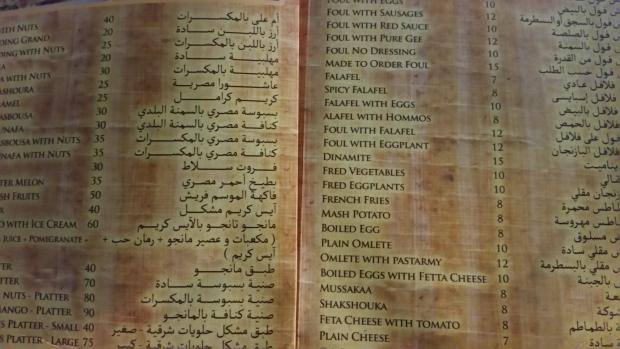 WITH NUTS 40 أم على بالمكسرات
DING GRAND 20 أرز باللبن سادة
DING WITH NUTS 30 أرز باللبن بالمكسرات
20 مهلبية سادة
A WITH NUTS 30 مهلبية بالمكسرات
ASHOURA 25 عاشورا مصرية
AMEL 25 كريم كرامل
ASBOUSA 30 بسبوسة مصري بالسمنة البلدي
UNAFA 30 كنافة مصري بالسمنة البلدي
ASBOUSA WITH NUTS 35 بسبوسة مصري بالمكسرات
UNAFA WITH NUTS 35 كنافة مصري بالمكسرات
30 فروت سلاط
TER MELON 35 بطيخ أحمر مصري
SH FRUITS 50 فاكهة الموسم فريش
40 آيس كريم مشكل
O WITH ICE CREAM 60 مانجو تانجو بالآيس كريم
JUICE + POMIGRANATE + ( مكعبات و عصير مانجو + رمان حب +
آيس كريم )
TTER 40 طبق مانجو
TTER 70 صنية بسبوسة سادة
NUTS - PLATTER 80 صنية بسبوسة بالمكسرات
MANGO - PLATTER 90 صنية كنافة بالمانجو
S PLATTER - SMALL 40 طبق مشكل حلويات شرقية - صغير
S PLATTER - LARGE 75 طبق مشكل حلويات شرقية - كبير
FOUL WITH EGGS 10 فول بالبيض
FOUL WITH SAUSAGES 12 فول بالسجق أو البسطرمة
FOUL WITH RED SAUCE 10 فول بالصلصة
FOUL WITH PURE GEF 12 فول بالسمنة
FOUL NO DRESSING 10 فول من القدرة
MADE TO ORDER FOUL 15 فول حسب الطلب
FALAFEL 7 فلافل عادي
SPICY FALAFEL 8 فلافل اسبايسى
FALAFEL WITH EGGS 10 فلافل بالبيض
ALAFEL WITH HOMMOS 8 فلافل بالحمص
FOUL WITH FALAFEL 12 فول على فلافل
FOUL WITH EGGPLANT 12 البازنجان
DINAMITE 15
FRED VEGETABLES 10
FRED EGGPLANTS 10 مقلي
FRENCH FRIES 8 محمرة
MASH POTATO 8 مهروسة
BOILED EGG 8 مسلوق
PLAIN OMLETE 8 مقلي سادة
OMLETE WITH PASTARMY 12 مقلي بالبسطرمة
BOILED EGGS WITH FETTA CHEESE 10 بالجبنة
MUSSAKAA 8
SHAKSHOUKA 8
FETA CHEESE WITH TOMATO 8 بالطماطم
PLAIN CHEESE 7 سادة